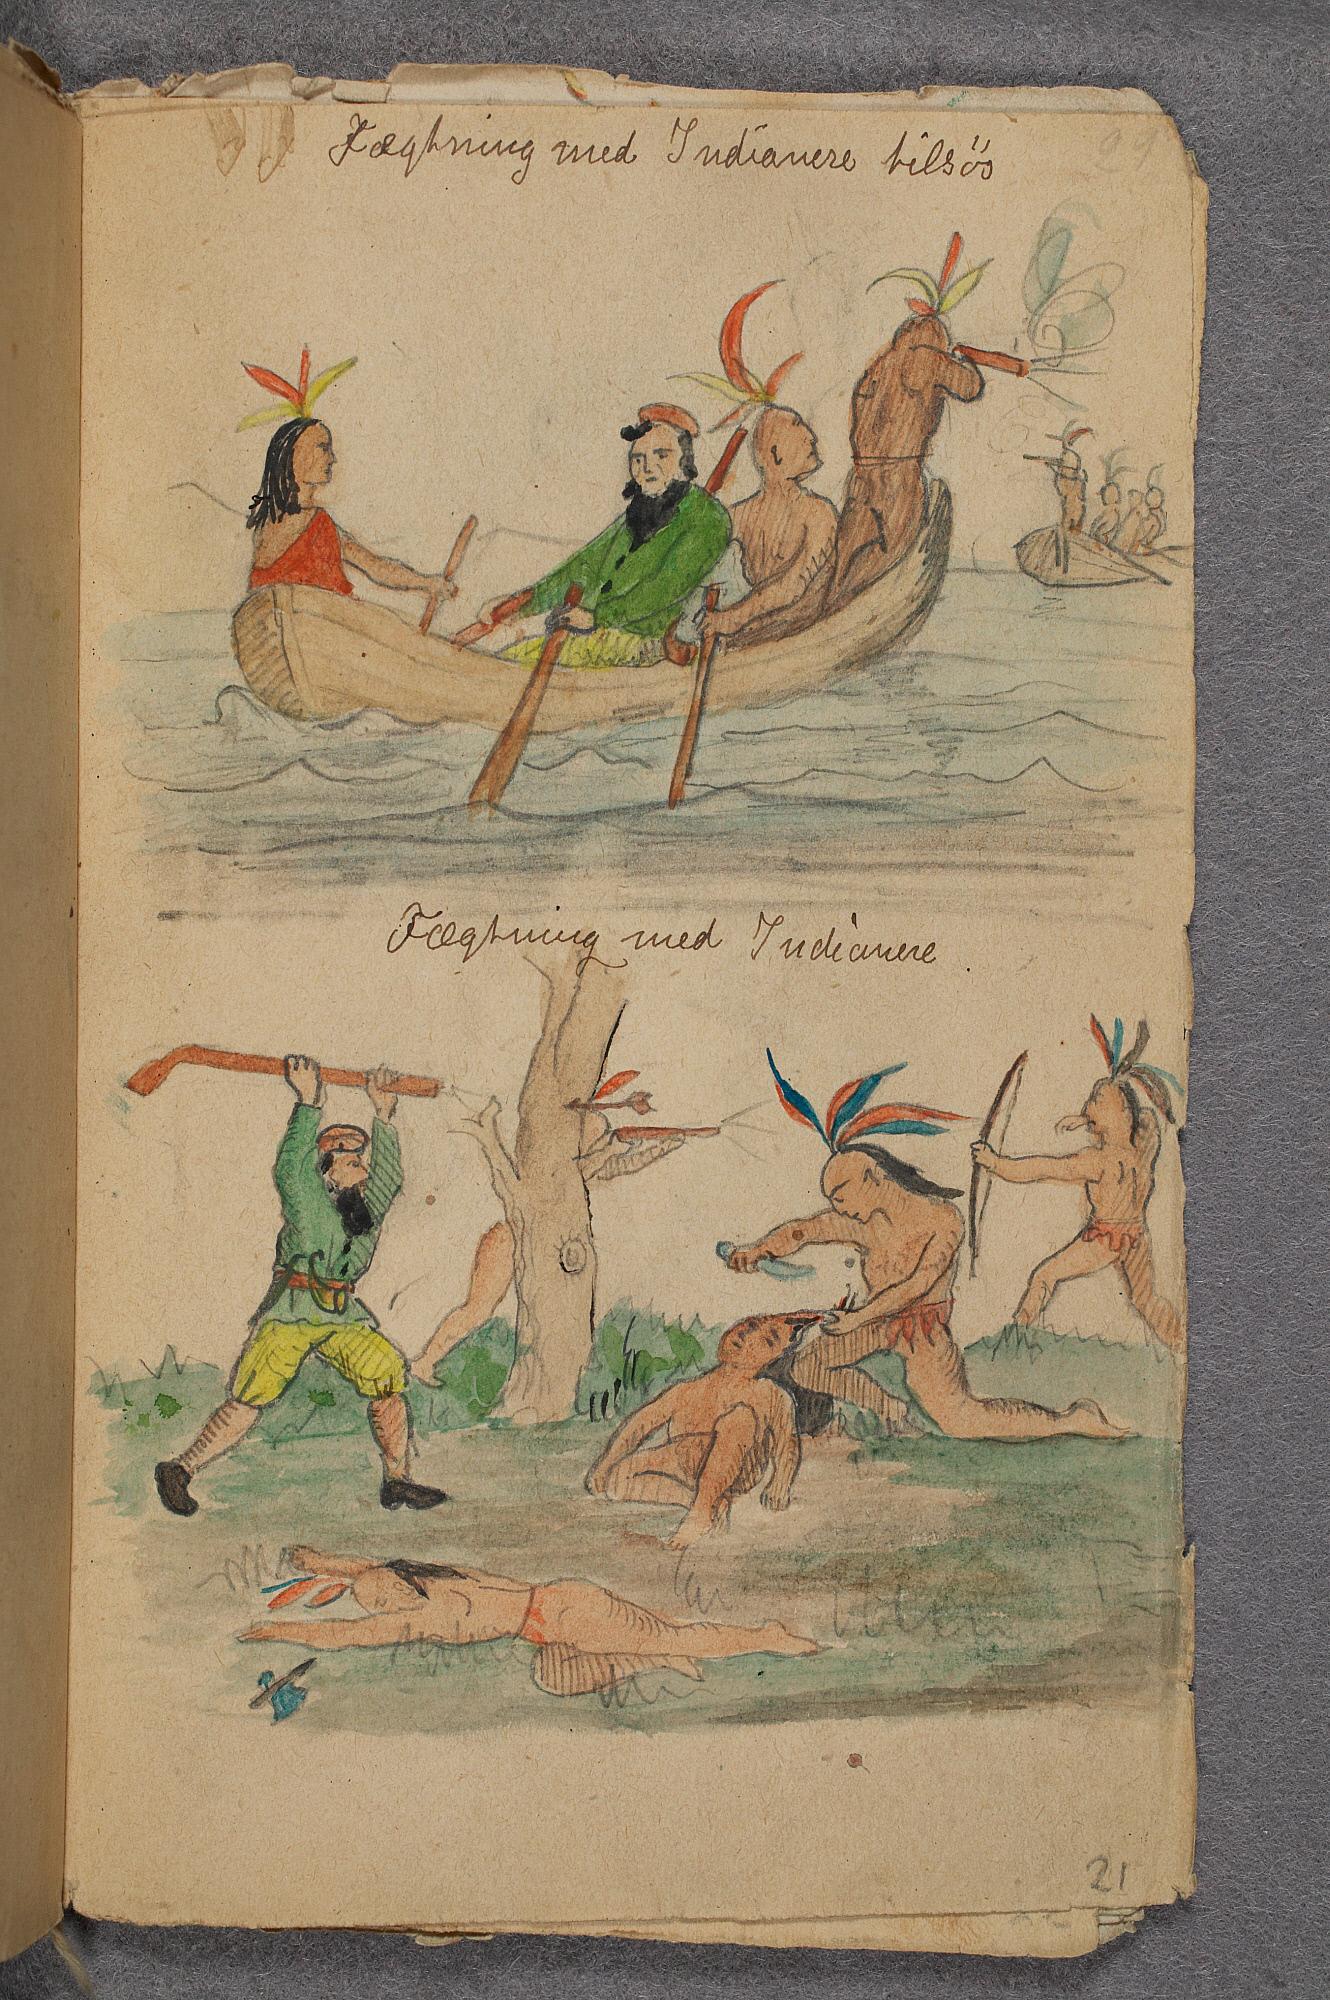 Fægtning med Indianere tilsös
Fægtning med Indianere.
21